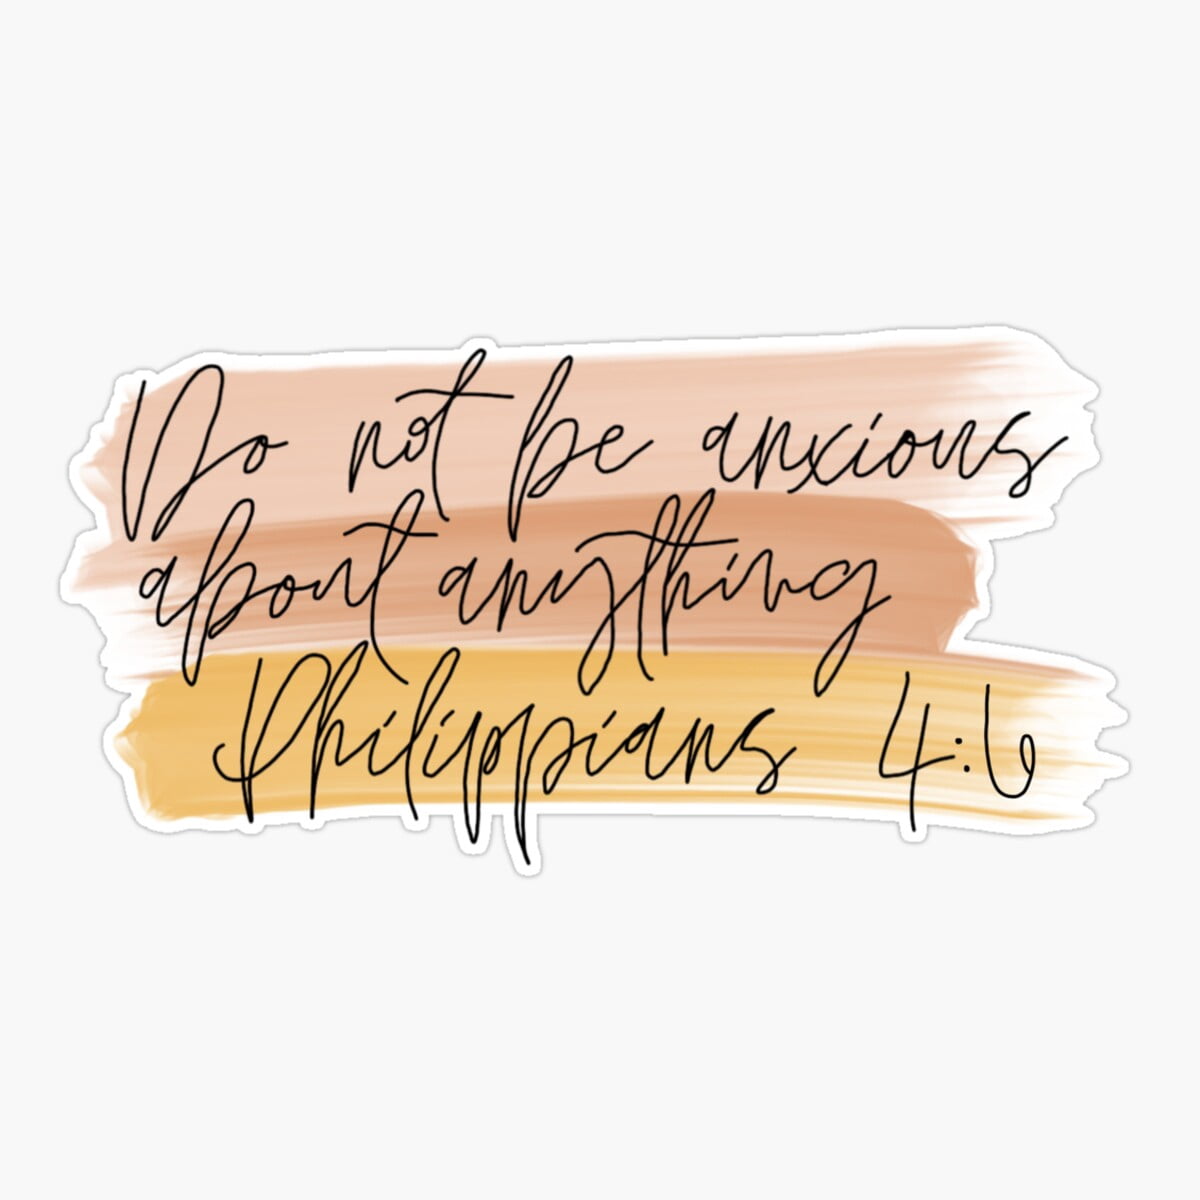 Do not be anxious
about anything
Philippians 4:6